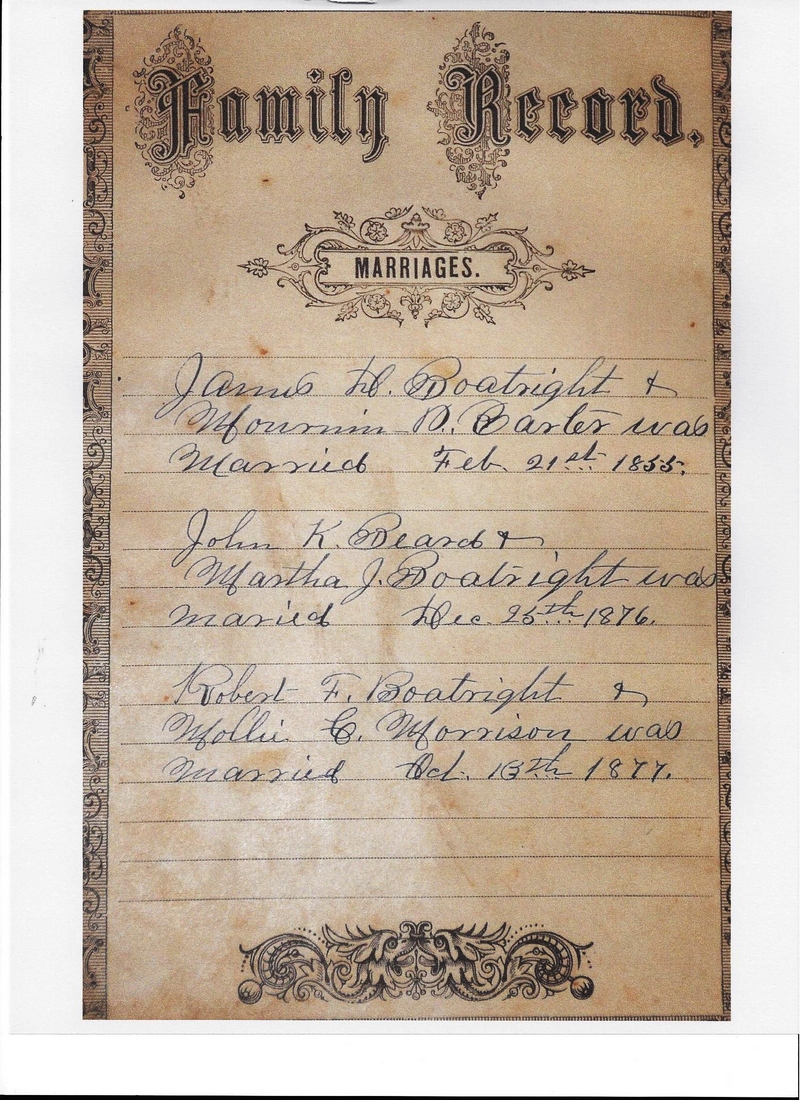 Family Record.
MARRIAGES.
James D. Boatright &
Mournin P. Barter was
Married Feb. 21st 1855.
John K. Beard &
Martha J. Boatright was
maried Dec. 25th 1876.
Robert F. Boatright &
Mollie C. Morrison was
Married Oct. 13th 1877.